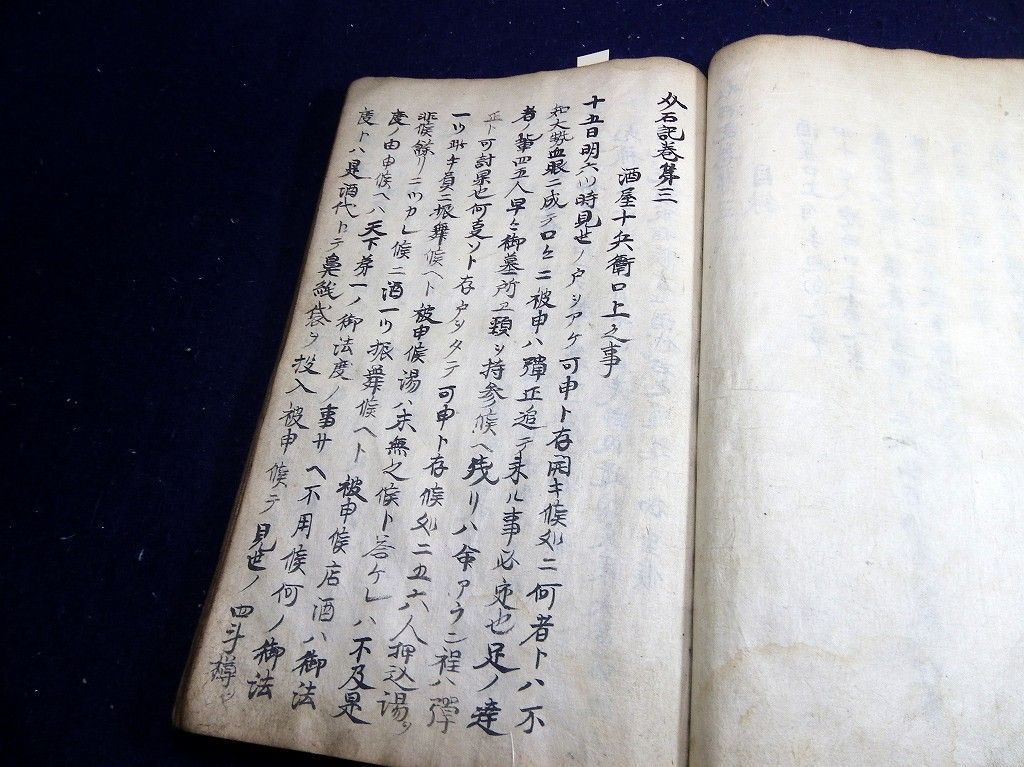 石記巻第三
酒屋十兵衛口上之事
十五日明六ツ時見せノ戸ヲアケ可申ト存開キ候処ニ何者トハ不
知大勢血眼ニ成テ口々ニ被申ハ弾正追テ来ル事必定也足ノ達
者ノ第四五人早々御墓所エ頚ヲ持参候ヘ残リハ命アラン程ハ弾
正ト可討果也何事ソト存戸ヲタテ可申ト存候処ニ五六人押込湯ヲ
一ツ宛キ員ニ振舞候ヘト被申候湯ハ未無之候ト答ケレハ不及是
非候餘リニツカレ候ニ酒一ツ振舞候ヘト被申候店酒ハ御法
度ノ由申候ヘハ天下第一ノ御法度ノ事サヘ不用候何ノ御法
度トハ是酒代トテ鼻紙袋ヲ投入被申候テ見世ノ四斗樽ヲ